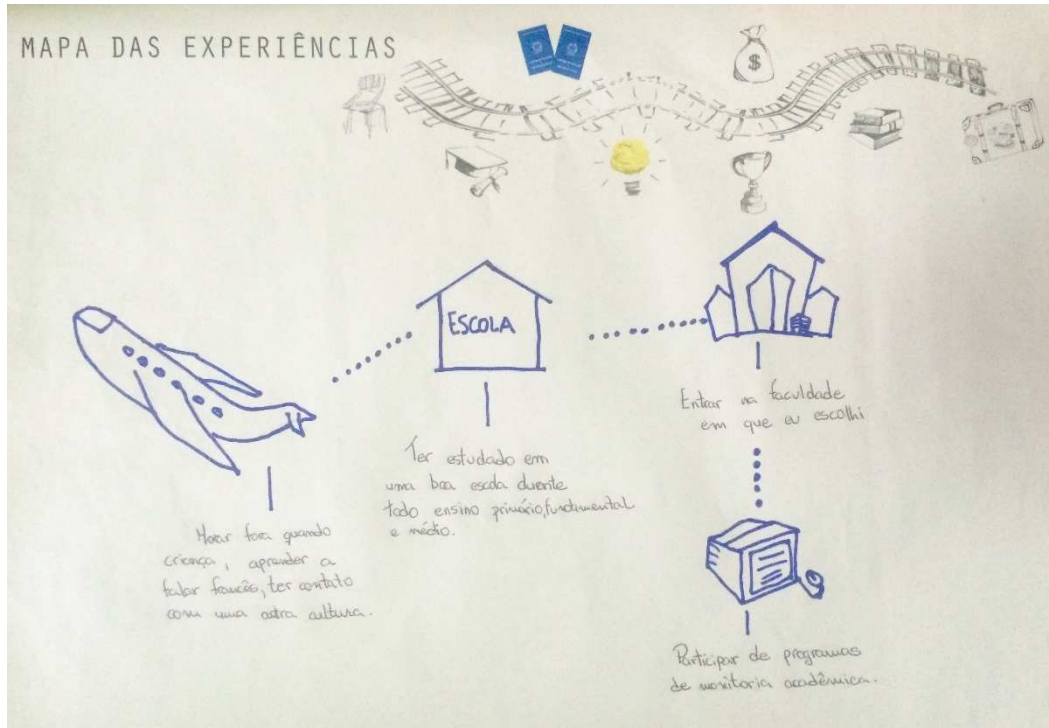 MAPA DAS EXPERIÊNCIAS
$
ESCOLA
Morar fora quando
criança, aprender a
falar francês, ter contato
com uma outra cultura.
Ter estudado em
uma boa escola durante
todo ensino primário, fundamental
e médio.
Entrar na faculdade
em que eu escolhi
Participar de programas
de monitoria acadêmica.